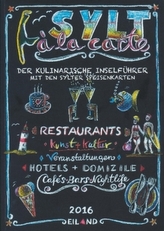 SYLT
a la carte
DER KULINARISCHE INSELFÜHRER
MIT DEN SYLTER SPEISENKARTEN
RESTAURANTS
Kunst + Kultur
Veranstaltungen
HOTELS + DOMIZILE
Cafés·Bars·Nightlife
2016
EILAND